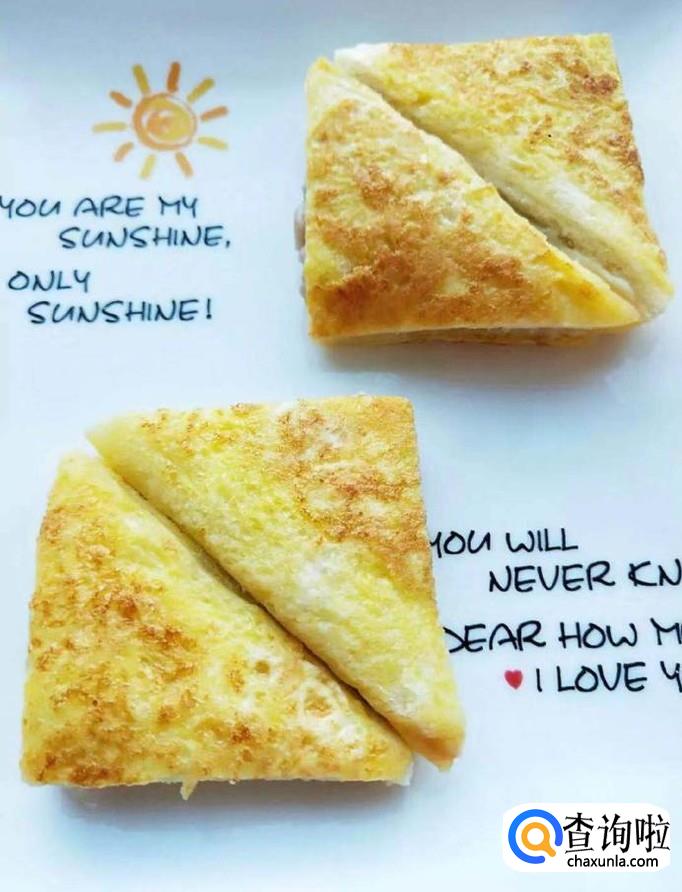 YOU ARE MY
SUNSHINE,
ONLY
SUNSHINE!
YOU WILL
NEVER
DEAR HOW
I LOVE
查询啦
chaxunla.com